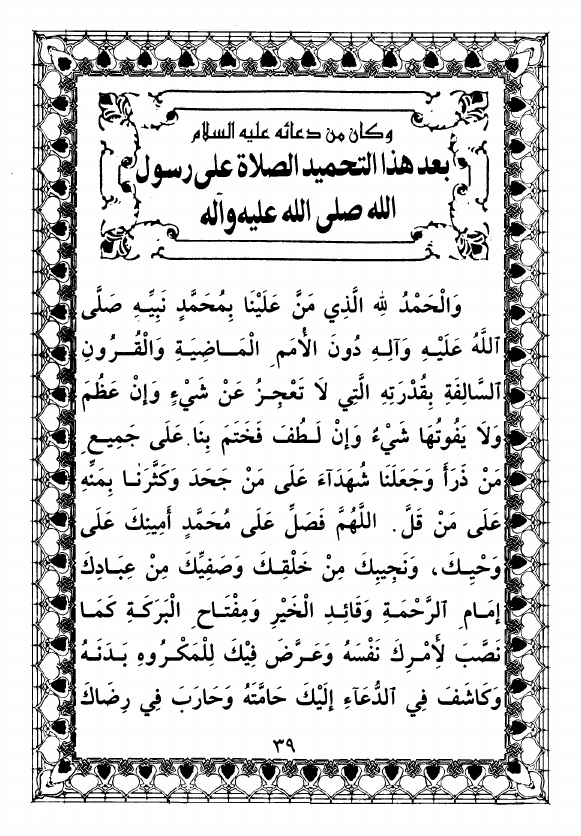 وكان من دعائه عليه السلام
بعد هذا التحميد الصلاة على رسول
الله صلى الله عليه وآله
وَالْحَمْدُ لِلهِ الَّذِي مَنَّ عَلَيْنَا بِمُحَمَّدٍ نَبِيِّهِ صَلَّى
ٱللَّهُ عَلَيْهِ وَآلِهِ دُونَ الأُمَمِ الْمَـاضِيَةِ وَالْقُـرُونِ
ٱلسَّالِفَةِ بِقُدْرَتِهِ الَّتِي لَا تَعْجِزُ عَنْ شَيْءٍ وَإِنْ عَظُمَ
وَلَا يَفُوتُهَا شَيْءٌ وَإِنْ لَـطُفَ فَخَتَمَ بِنَا عَلَى جَمِيعِ
مَنْ ذَرَأَ وَجَعَلَنَا شُهَدَآءَ عَلَى مَنْ جَحَدَ وَكَثَّرَنَا بِمَنِّهِ
عَلَى مَنْ قَلَّ. اللَّهُمَّ فَصَلِّ عَلَى مُحَمَّدٍ أَمِينِكَ عَلَى
وَحْيِـكَ، وَنَجِيبِكَ مِنْ خَلْقِـكَ وَصَفِيِّكَ مِنْ عِبَادِكَ
إِمَامِ ٱلرَّحْمَةِ وَقَائِدِ الْخَيْرِ وَمِفْتَـاحِ الْبَرَكَةِ كَمَـا
نَصَّبَ لِأَمْـرِكَ نَفْسَهُ وَعَـرَّضَ فِيْكَ لِلْمَكْـرُوهِ بَـدَنَـهُ
وَكَاشَفَ فِي ٱلدُّعَآءِ إِلَيْكَ حَامَّتَهُ وَحَارَبَ فِي رِضَاكَ
٣٩